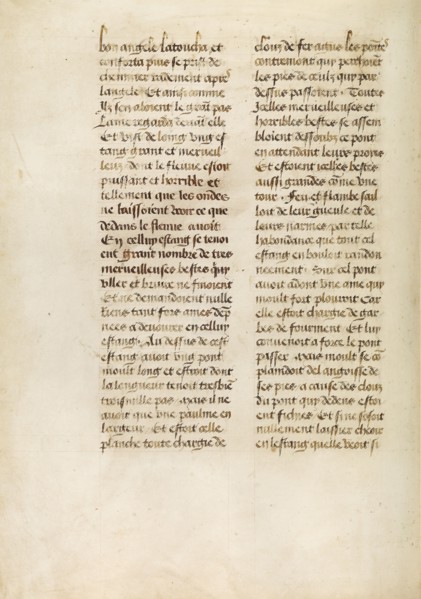 bon angele latoucha et
conforta puis se prist de
cheminer radement apres
langele Et ainsi comme
Ilz sen aloient le grant pas
Lame regarda deuant elle
Et vist de loing vng es
tang grant et merueil
leux dont le fleuue estoit
puissant et horrible et
tellement que les ondes
ne laissoient veoir ce que
dedans le fleuue auoit
Et en celluy estang se tenoi
ent grant nombre de tres
merueilleuses bestes quy
vller et bruire ne finoient
Et ne demandoient nulle
riens tant fors ames
a deuourer en celluy
estang. Au dessus de cest
estang auoit vng pont
moult long et estroit dont
la longueur tenoit tresbien
trois mille pas. Mais il ne
auoit que vne paulme en
largeur. Et estoit celle
planche toute chargie de
clouz de fer agus les pointes
contremont quy perchoient
les pies de ceulz quy par
dessus passoient. Toutes
Icelles merueilleuses et
horribles bestes se assem
bloient dessoubz ce pont
en attendant leurs proyes
Et estoient icelles bestes
aussi grandes come vne
tour. Feu et flambe sail
loit de leur gueule et de
leurs narines par telle
habondance que tout cel
estang en bouloit randon
neement. Sur cel pont
auoit adont vne ame quy
moult fort plouroit Car
elle estoit chargie de gar
bes de fourment. Et luy
conuenoit a force le pont
passer. Mais moult se co
plaindoit de langoisse de
ses pies a cause des clouz
du pont quy dedens estoi
ent fichies. Et si ne sosoit
nullement laissier cheoir
en lestang quelle veoit si